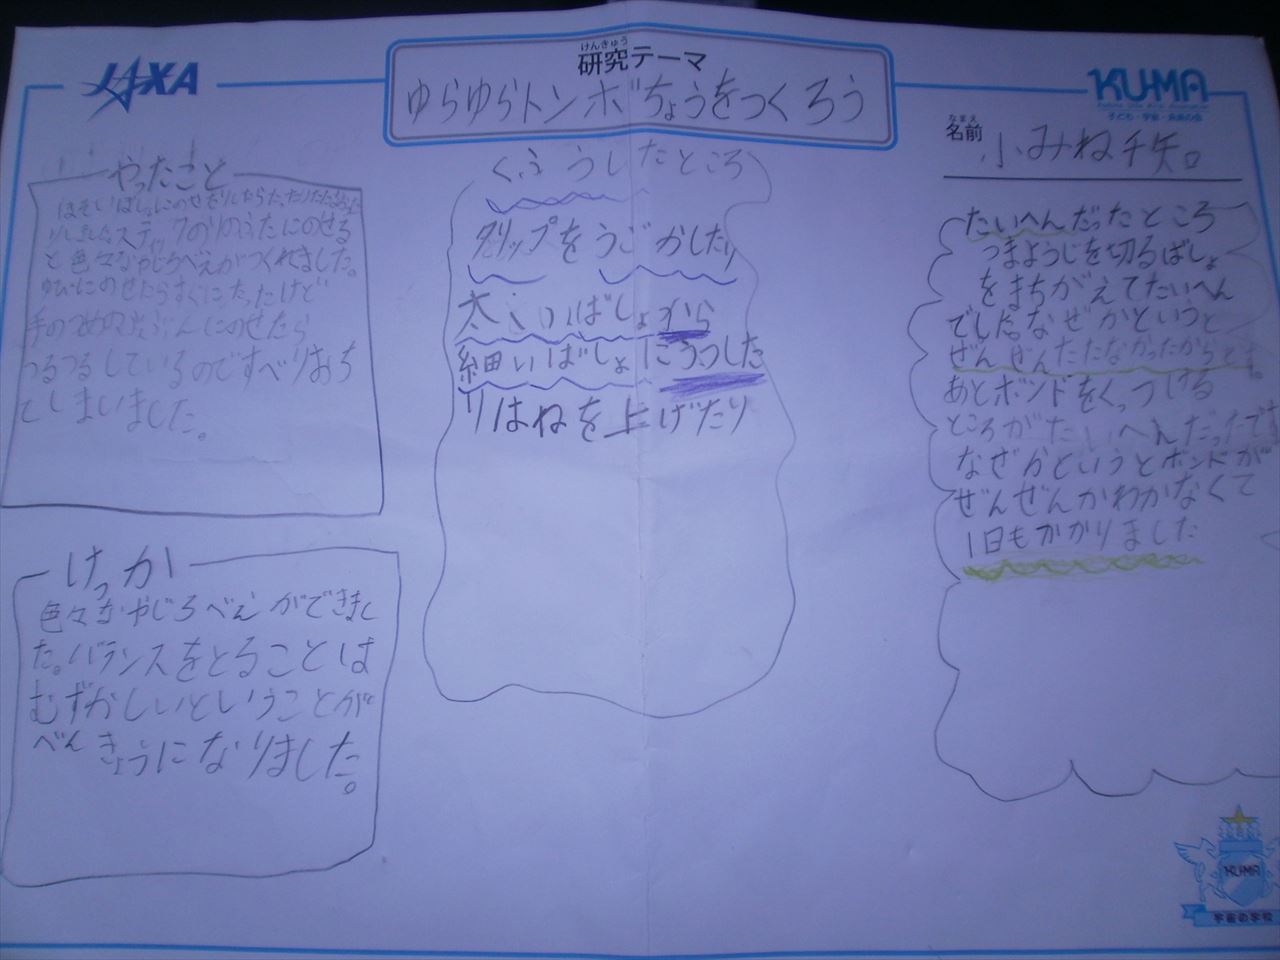 JAXA
けんきゅう
研究テーマ
ゆらゆらトンボ ちょうをつくろう
KU-MA
子ども・宇宙・未来の会
なまえ
名前
小みね千矢口
やったこと
ほそいばしょにのせたりしたら
りしました。スティックのりのふたにのせる
と色々なやじろべえがつくれました。
ゆびにのせたらすぐにたったけど
手のつめの ぶんにのせたら
つるつるしているのですべりおち
てしまいました。
くふうしたところ
クリップをうごかしたり
太いばしょから
細いばしょにうつした
りはねを上げたり
たいへんだったところ
つまようじを切るばしょ
をまちがえてたいへん
でした。なぜかというと
ぜんぜんたたなかったからです。
あとボンドをくっつける
ところがたいへんだったです
なぜかというとボンドが
ぜんぜんかわかなくて
1日もかかりました
けっか
色々なやじろべえができまし
た。バランスをとることは
むずかしいということが
べんきょうになりました。
KU-MA
宇宙の学校